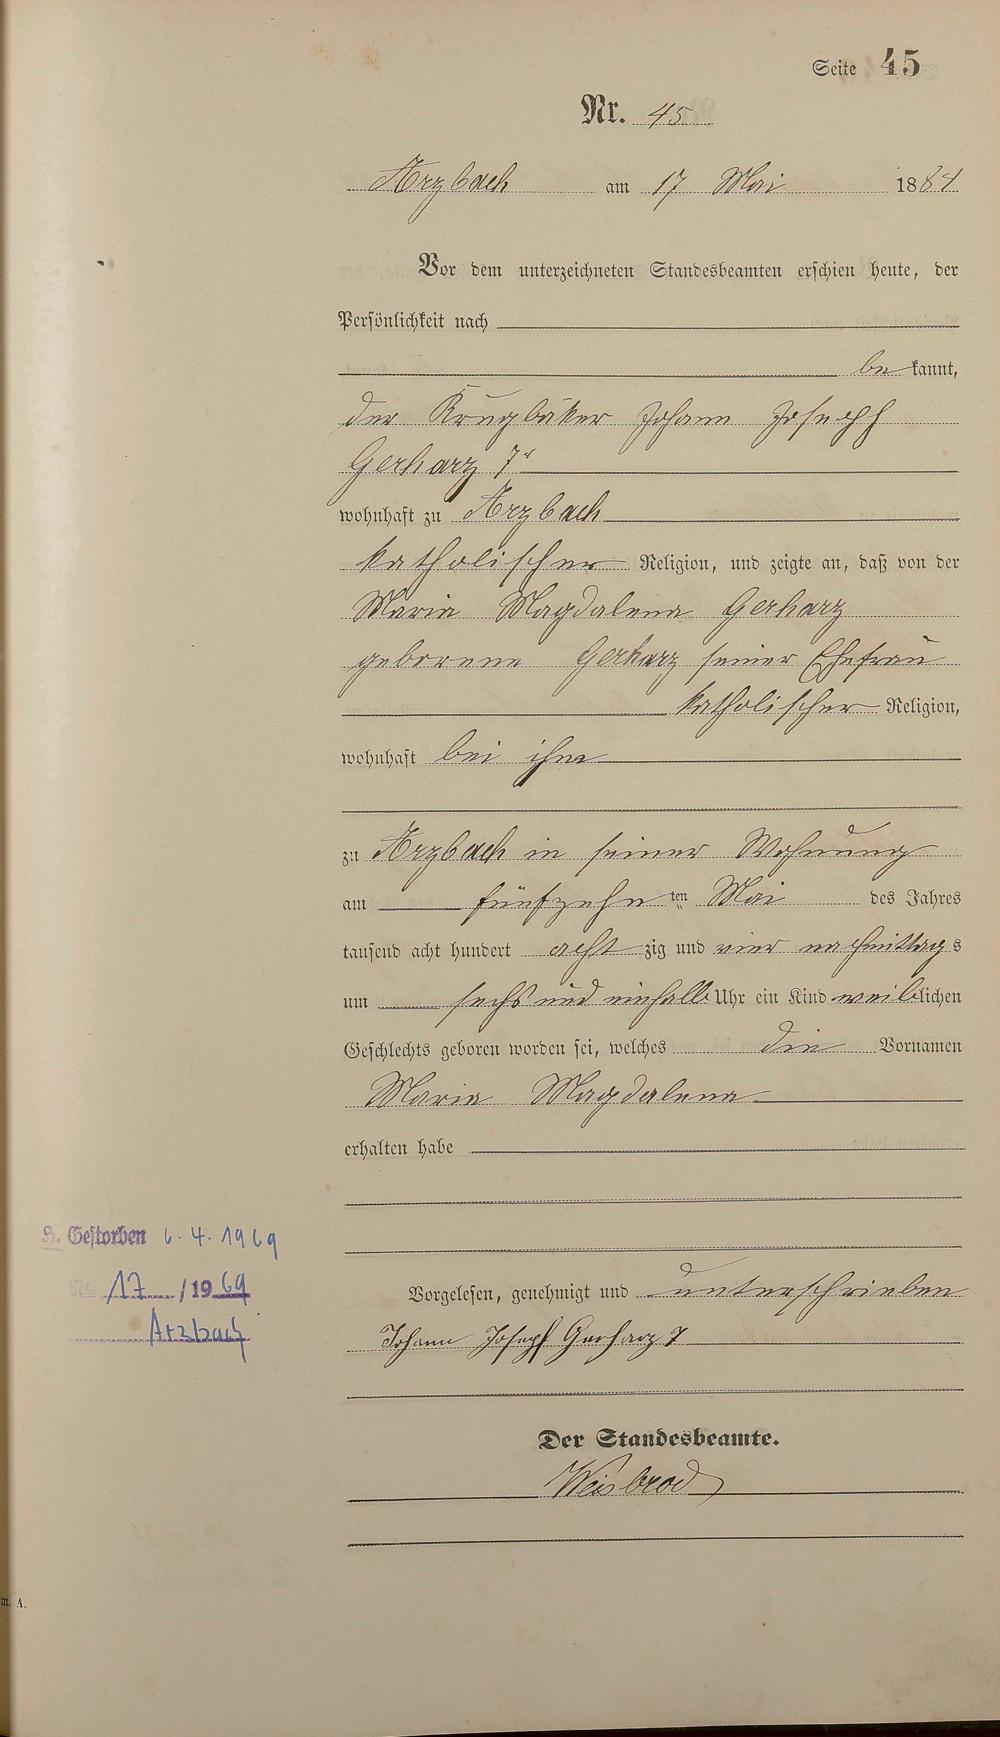 Seite 45
Nr. 45
Arzbach am 17 Mai 1884
Vor dem unterzeichneten Standesbeamten erschien heute, der
Persönlichkeit nach
bekannt,
der Krugbäker Johann Joseph
Gerharz 7r
wohnhaft zu Arzbach
katholischer Religion, und zeigte an, daß von der
Maria Magdalena Gerharz
geborene Gerharz seiner Ehefrau
katholischer Religion,
wohnhaft bei ihm
zu Arzbach in seiner Wohnung
am fünfzehnten Mai des Jahres
tausend acht hundert achtzig und vier nachmittags
um sechs und einhalb Uhr ein Kind weiblichen
Geschlechts geboren worden sei, welches die Vornamen
Maria Magdalena
erhalten habe
H. Gestorben 6.4.1969
Nr. 17 /1969
Arzbach
Vorgelesen, genehmigt und unterschrieben
Johann Joseph Gerharz 7
Der Standesbeamte.
Weisbrod
m. A.